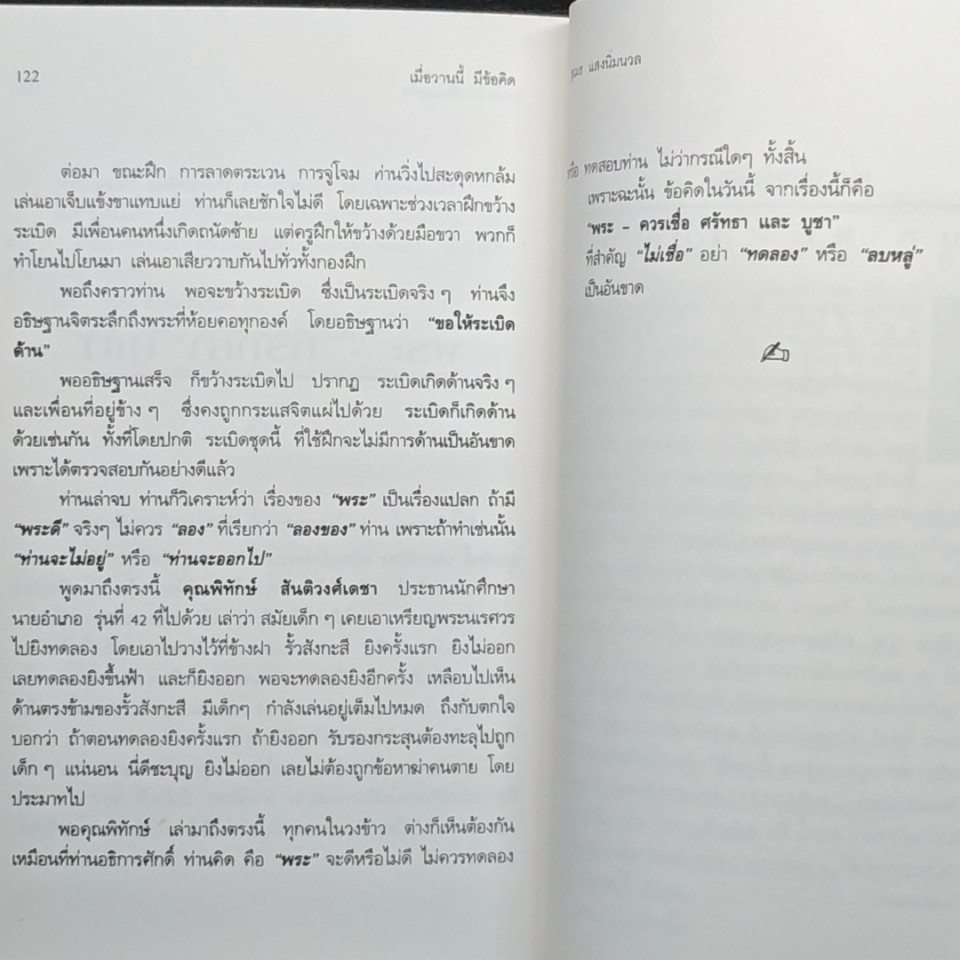 122
เมื่อวานนี้ มีข้อคิด
ต่อมา ขณะฝึก การลาดตระเวน การจู่โจม ท่านวิ่งไปสะดุดหกล้ม
เล่นเอาเจ็บแข้งขาแทบแย่ ท่านก็เลยชักใจไม่ดี โดยเฉพาะช่วงเวลาฝึกขว้าง
ระเบิด มีเพื่อนคนหนึ่งเกิดถนัดซ้าย แต่ครูฝึกให้ขว้างด้วยมือขวา พวกก็
ทำโยนไปโยนมา เล่นเอาเสียววาบกันไปทั่วทั้งกองฝึก
พอถึงคราวท่าน พอจะขว้างระเบิด ซึ่งเป็นระเบิดจริง ๆ ท่านจึง
อธิษฐานจิตระลึกถึงพระที่ห้อยคอทุกองค์ โดยอธิษฐานว่า “ขอให้ระเบิด
ด้าน”
พออธิษฐานเสร็จ ก็ขว้างระเบิดไป ปรากฏ ระเบิดเกิดด้านจริง ๆ
และเพื่อนที่อยู่ข้าง ๆ ซึ่งคงถูกกระแสจิตแผ่ไปด้วย ระเบิดก็เกิดด้าน
ด้วยเช่นกัน ทั้งที่โดยปกติ ระเบิดชุดนี้ ที่ใช้ฝึกจะไม่มีการด้านเป็นอันขาด
เพราะได้ตรวจสอบกันอย่างดีแล้ว
ท่านเล่าจบ ท่านก็วิเคราะห์ว่า เรื่องของ “พระ” เป็นเรื่องแปลก ถ้ามี
“พระดี” จริงๆ ไม่ควร “ลอง” ที่เรียกว่า “ลองของ” ท่าน เพราะถ้าทำเช่นนั้น
“ท่านจะไม่อยู่” หรือ “ท่านจะออกไป”
พูดมาถึงตรงนี้ คุณพิทักษ์ สันติวงศ์เดชา ประธานนักศึกษา
นายอำเภอ รุ่นที่ 42 ที่ไปด้วย เล่าว่า สมัยเด็ก ๆ เคยเอาเหรียญพระนเรศวร
ไปยิงทดลอง โดยเอาไปวางไว้ที่ข้างฝา รั้วสังกะสี ยิงครั้งแรก ยิงไม่ออก
เลยทดลองยิงขึ้นฟ้า และก็ยิงออก พอจะทดลองยิงอีกครั้ง เหลือบไปเห็น
ด้านตรงข้ามของรั้วสังกะสี มีเด็กๆ กำลังเล่นอยู่เต็มไปหมด ถึงกับตกใจ
บอกว่า ถ้าตอนทดลองยิงครั้งแรก ถ้ายิงออก รับรองกระสุนต้องทะลุไปถูก
เด็ก ๆ แน่นอน นี่ดีชะบุญ ยิงไม่ออก เลยไม่ต้องถูกข้อหาฆ่าคนตาย โดย
ประมาทไป
พอคุณพิทักษ์ เล่ามาถึงตรงนี้ ทุกคนในวงข้าว ต่างก็เห็นต้องกัน
เหมือนที่ท่านอธิการศักดิ์ ท่านคิด คือ “พระ” จะดีหรือไม่ดี ไม่ควรทดลอง
แสงนิ่มนวล
หรือ ทดสอบท่าน ไม่ว่ากรณีใดๆ ทั้งสิ้น
เพราะฉะนั้น ข้อคิดในวันนี้ จากเรื่องนี้ก็คือ
“พระ - ควรเชื่อ ศรัทธา และ บูชา”
ที่สำคัญ “ไม่เชื่อ” อย่า “ทดลอง” หรือ “ลบหลู่”
เป็นอันขาด